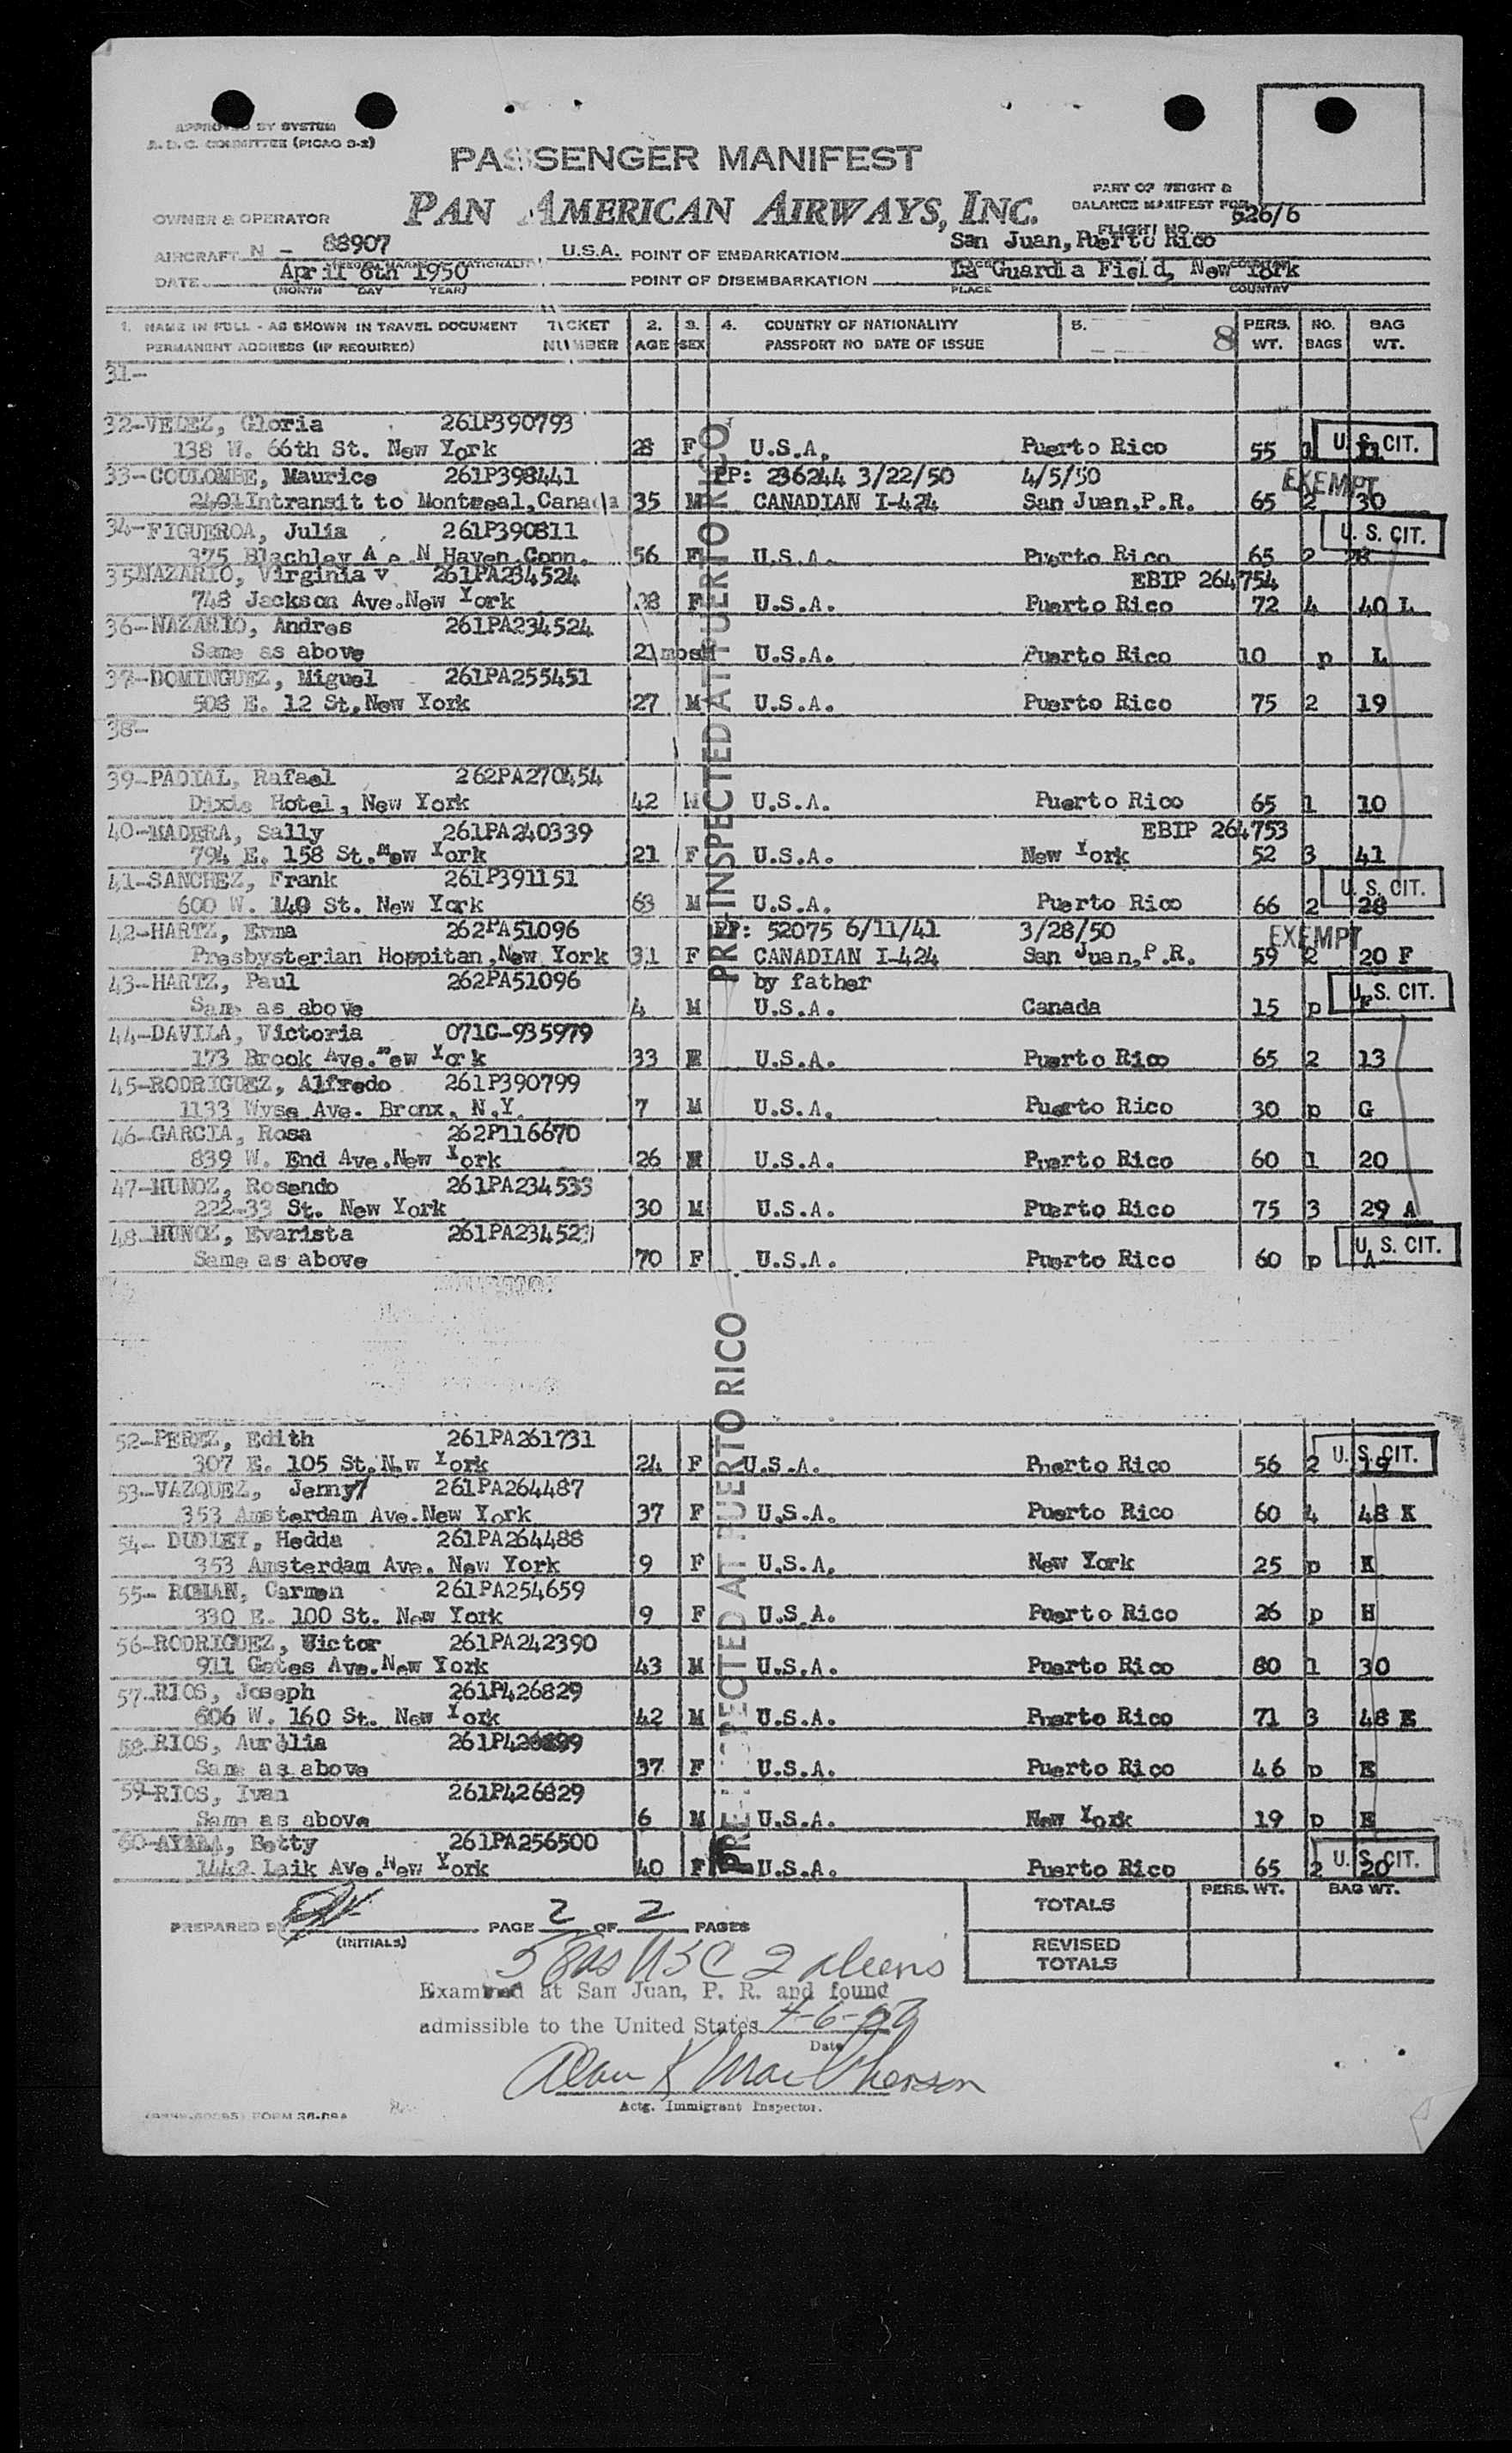 APPROVED BY SYSTEM
A. D. C. COMMITTEE (PICAO 9-2)
PASSENGER MANIFEST
PAN AMERICAN AIRWAYS, INC.
PART OF WEIGHT &
BALANCE MANIFEST FOR
FLIGHT NO. 526/6
OWNER & OPERATOR
AIRCRAFT N - 88907 U.S.A. POINT OF EMBARKATION San Juan, Puerto Rico
DATE April 6th 1950 POINT OF DISEMBARKATION La Guardia Field, New York
(MONTH DAY YEAR) PLACE COUNTRY
1. NAME IN FULL - AS SHOWN IN TRAVEL DOCUMENT TICKET 2. 3. 4. COUNTRY OF NATIONALITY 5. PERS. NO. BAG
PERMANENT ADDRESS (IF REQUIRED) NUMBER AGE SEX PASSPORT NO DATE OF ISSUE 8 WT. BAGS WT.
31-
32-VELEZ, Gloria 261P390793
138 W. 66th St. New York 28 F U.S.A. Puerto Rico 55 1 U.S. CIT.
33-COULOMBE, Maurice 261P398441 PP: 236244 3/22/50 4/5/50 EXEMPT
Intransit to Montreal, Canada 35 M CANADIAN I-424 San Juan, P.R. 65 2 30
34-FIGUEROA, Julia 261P390811 U. S. CIT.
375 Blachley A e N Haven Conn. 56 F U.S.A. Puerto Rico 65 2
35NAZARIO, Virginia v 261PA234524 EBIP 264754
748 Jackson Ave.New York 38 F U.S.A. Puerto Rico 72 4 40 L
36-NAZARIO, Andres 261PA234524
Same as above 21mosM U.S.A. Puerto Rico 10 p L
37-DOMINGUEZ, Miguel 261PA255451
508 E. 12 St.New York 27 M U.S.A. Puerto Rico 75 2 19
38-
39-PADIAL, Rafael 262PA270454
Dixie Hotel, New York 42 M U.S.A. Puerto Rico 65 1 10
40-MADERA, Sally 261PA240339 EBIP 264753
794 E. 158 St.New York 21 F U.S.A. New York 52 3 41
41-SANCHEZ, Frank 261P391151 U. S. CIT.
600 W. 140 St. New York 63 M U.S.A. Puerto Rico 66 2 28
42-HARTZ, Erma 262PA51096 PP: 52075 6/11/41 3/28/50 EXEMPT
Presbysterian Hoppitan,New York 31 F CANADIAN I-424 San Juan,P.R. 59 2 20 F
43-HARTZ, Paul 262PA51096 by father U.S. CIT.
Same as above 4 M U.S.A. Canada 15 p F
44-DAVILA, Victoria 071C-935979
173 Brook Ave.New York 33 F U.S.A. Puerto Rico 65 2 13
45-RODRIGUEZ, Alfredo 261P390799
1133 Wyse Ave. Bronx, N.Y. 7 M U.S.A. Puerto Rico 30 p G
46-GARCIA, Rosa 262P116670
839 W. End Ave.New York 26 U.S.A. Puerto Rico 60 1 20
47-MUNOZ, Rosendo 261PA234533
222-33 St. New York 30 M U.S.A. Puerto Rico 75 3 29 A
48-MUNOZ, Evarista 261PA234523 U. S. CIT.
Same as above 70 F U.S.A. Puerto Rico 60 p A
52-PEREZ, Edith 261PA261731
307 E. 105 St.New York 24 F U.S.A. Puerto Rico 56 2 19 U. S. CIT.
53-VAZQUEZ, Jenny 261PA264487
353 Amsterdam Ave.New York 37 F U.S.A. Puerto Rico 60 4 48 K
54- DUDLEY, Hedda 261PA264488
353 Amsterdam Ave. New York 9 F U.S.A. New York 25 p K
55- ROMAN, Carmen 261PA254659
330 E. 100 St. New York 9 F U.S.A. Puerto Rico 26 p H
56-RODRIGUEZ, Victor 261PA242390
911 Gates Ave.New York 43 M U.S.A. Puerto Rico 80 1 30
57-RIOS, Joseph 261P426829
606 W. 160 St. New York 42 M U.S.A. Puerto Rico 71 3 48 E
58-RIOS, Aurelia
Same as above 37 F U.S.A. Puerto Rico 46 p E
59-RIOS, Ivan 261P426829
Same as above 6 M U.S.A. New York 19 p E
60-AYALA, Betty 261PA256500
1442 Laik Ave.New York 40 F U.S.A. Puerto Rico 65 2 20 U. S. CIT.
PRE-INSPECTED AT PUERTO RICO
PRE-INSPECTED AT PUERTO RICO
PREPARED BY PAGE 2 OF 2 PAGES
(INITIALS)
TOTALS PERS. WT. BAG WT.
REVISED
TOTALS
58 as USC 2 aliens
Examined at San Juan, P. R. and found
admissible to the United States 4-6-50
Date
Alan K MacPherson
Actg. Immigrant Inspector.